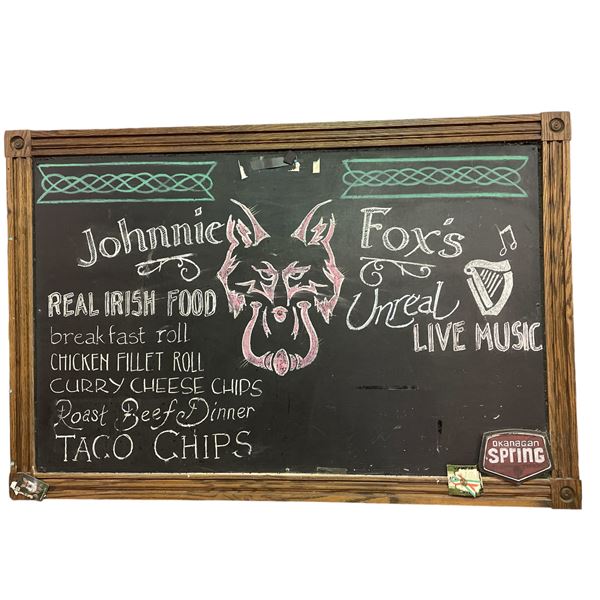 Johnnie Fox's
REAL IRISH FOOD
breakfast roll
CHICKEN FILLET ROLL
CURRY CHEESE CHIPS
Roast Beef Dinner
TACO CHIPS
Unreal
LIVE MUSIC
OKANAGAN
SPRING